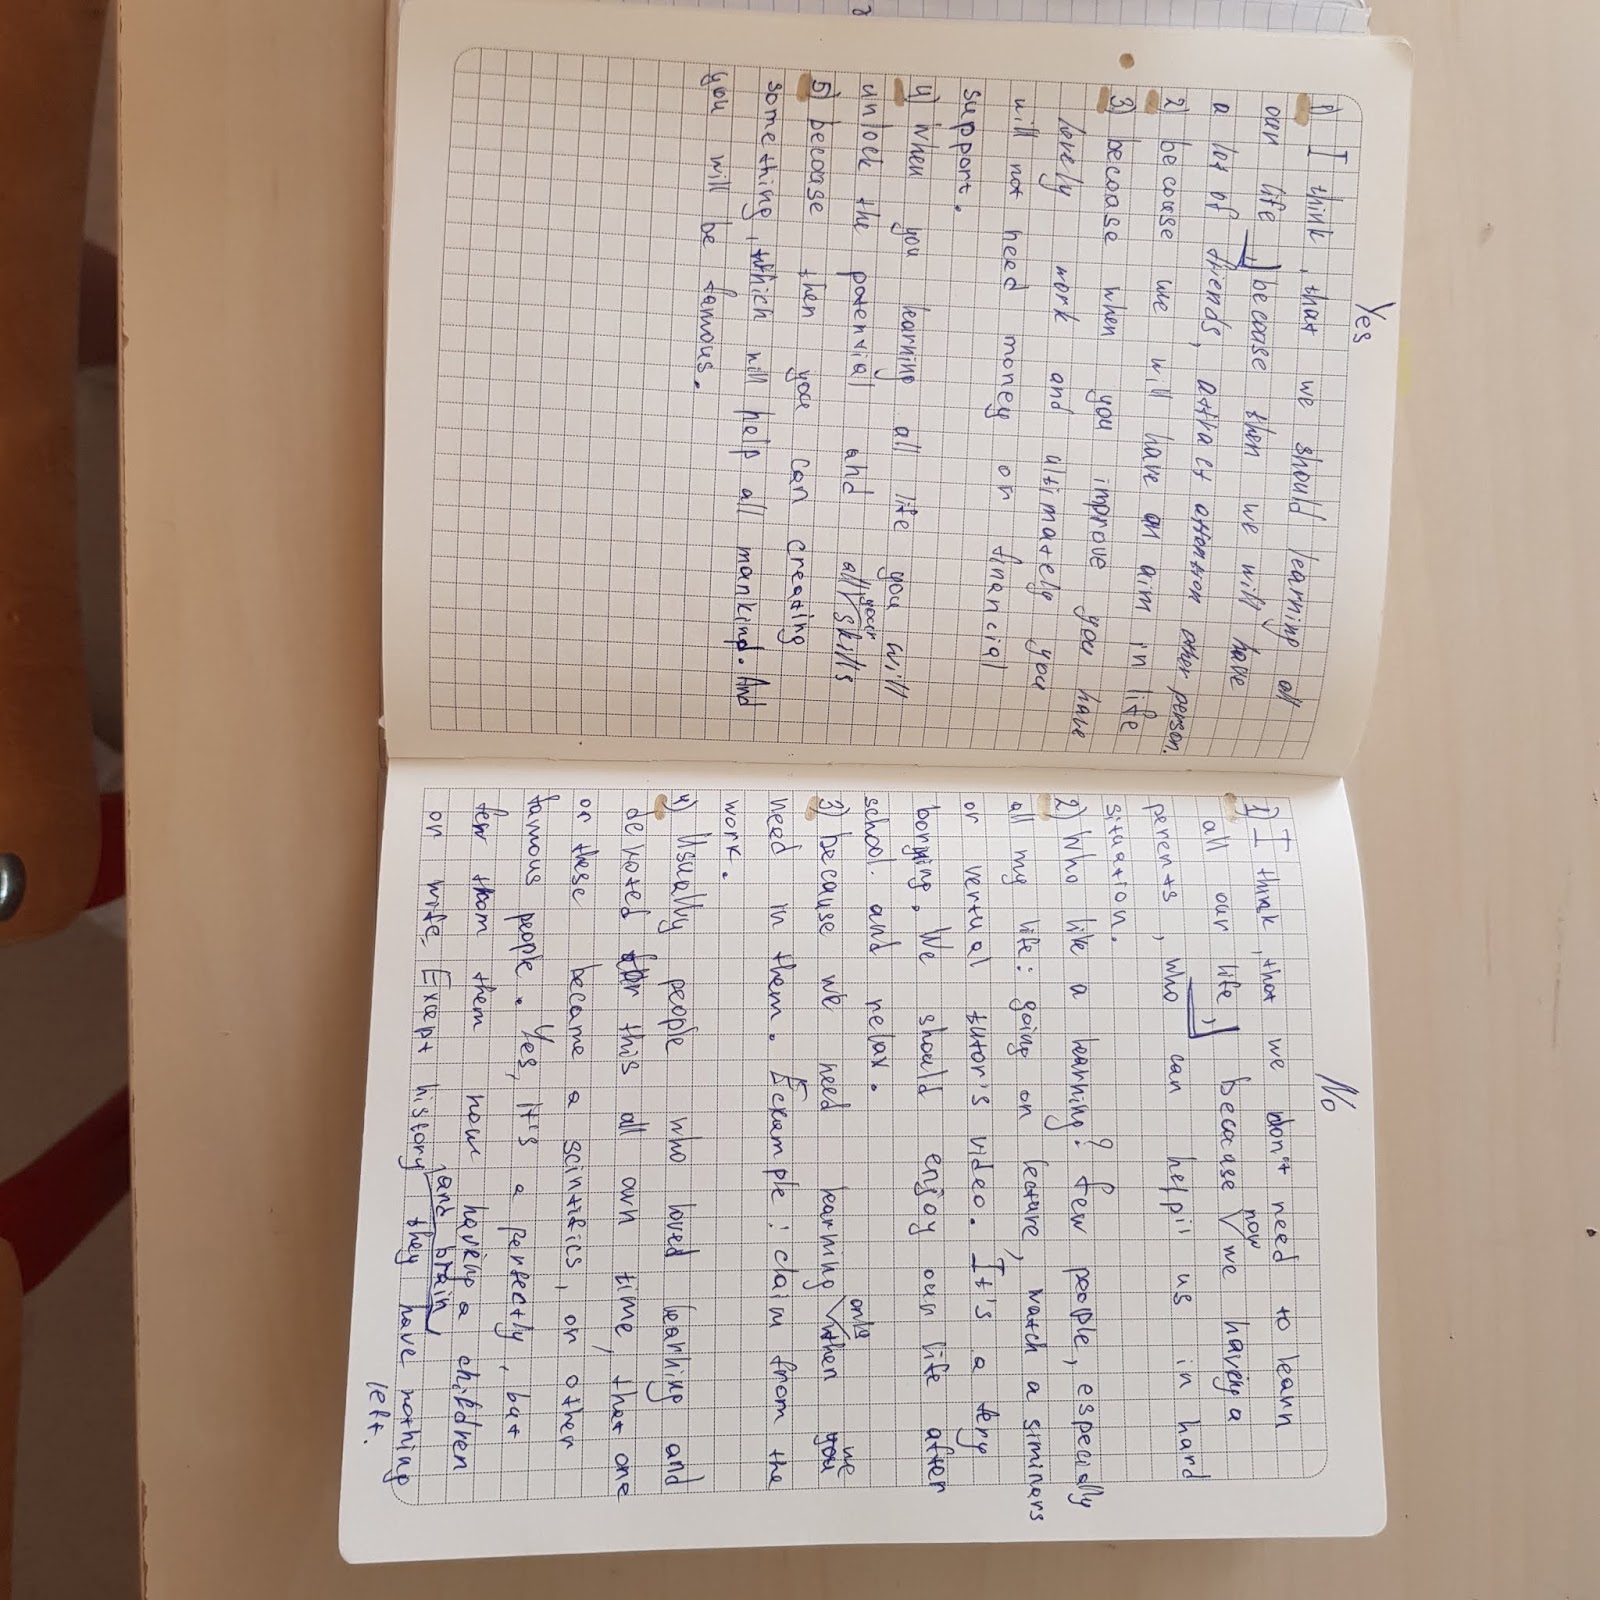 Yes
1) I think, that we should learning all
our life, becoase then we will have
a lot of friends, attract attention other person.
2) becouse we will have an aim in life
3) becoase when you improve you have
lovely work and ultimately you
will not need money or financial
support.
4) when you learning all life you will
unlock the potential and all your skills
5) becoase then you can creating
something, which will help all mankind. And
you will be famous.
No
1) I think, that we don't need to learn
all our life, becoase now we having a
perents, who can help us in hard
situation.
2) Who like a learning? few people, especially
all my life: going on lecture, watch a siminars
or vertual tutor's video. It's a very
boring. We should enjoy our life after
school. and relax.
3) because we need learning only then we
need in them. Example: claim from the
work.
4) Usually people who loved learning and
devoted for this all own time, that one
or these became a scintifics, or other
famous people. Yes, it's a perfectly, but
few them now having a children
or wife. Exept history and brain they have nothing
left.